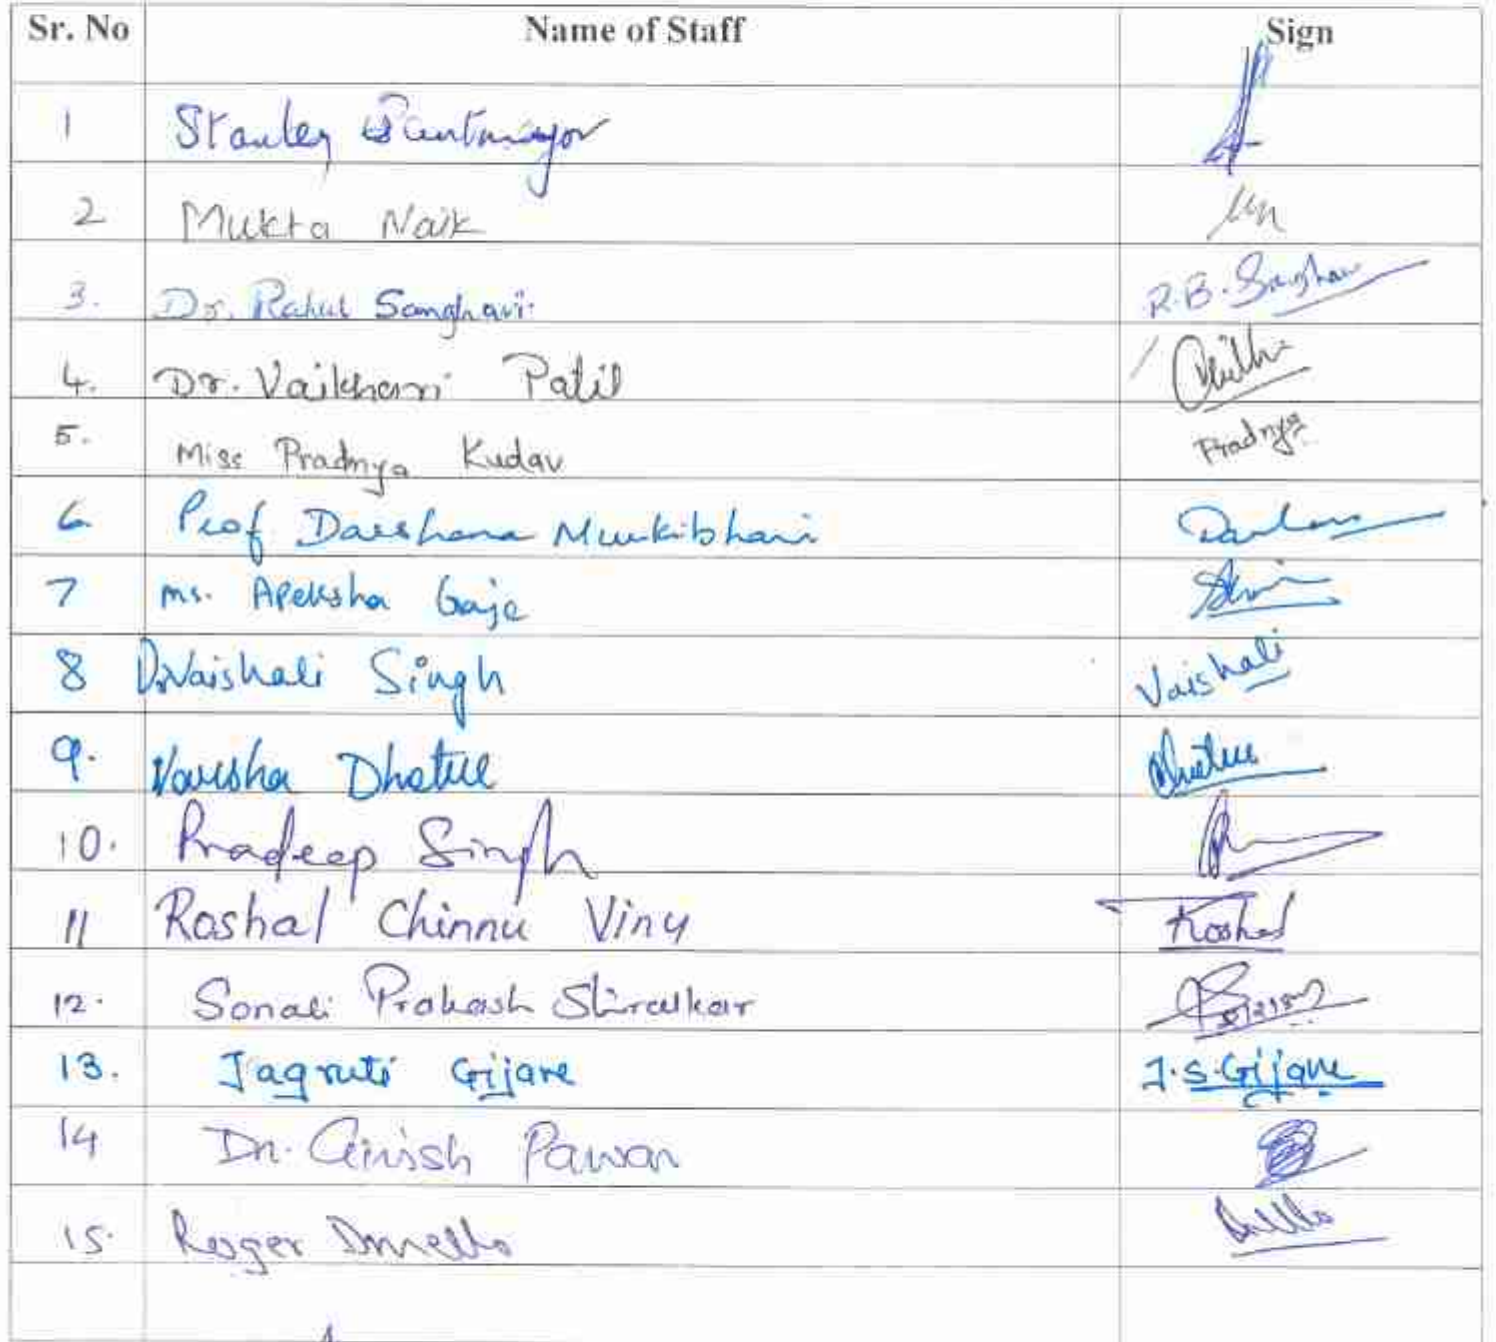 Sr. No Name of Staff Sign
1 Stanley
2 Mukta Naik
3. Dr. Rahul Sanghavi R.B. Sanghavi
4. Dr. Vaikhari Patil
5. Miss Pradnya Kudav Pradnya
6 Prof Darshana Munkibhavi
7 Ms. Apeksha Gaje
8 Dr Vaishali Singh Vaishali
9. Varsha Dhatre
10. Pradeep Singh
11 Roshal Chinnu Vinu Roshal
12. Sonali Prakash Shiralkar
13. Jagruti Gijare J.S.Gijare
14 Dr. Girish Pawar
15. Roger Dmello